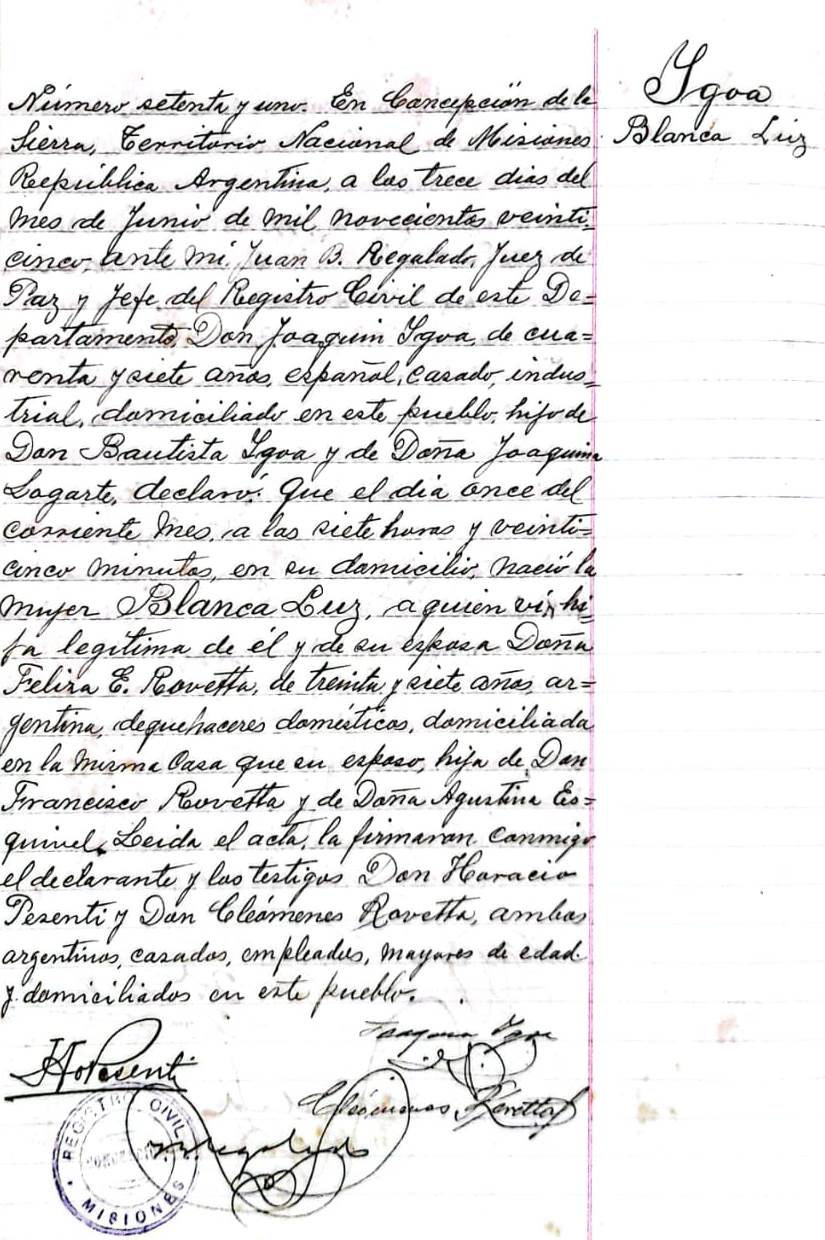 Ygoa
Blanca Luz
Número setenta y uno. En Concepción de la
Sierra, Territorio Nacional de Misiones
República Argentina, a los trece dias del
mes de Junio de mil novecientos veinti-
cinco, ante mí, Juan B. Regalado, Juez de
Paz y Jefe del Registro Civil de este De=
partamento, Don Joaquin Ygoa, de cua=
renta y siete años, español, casado, indus=
trial, domiciliado en este pueblo, hijo de
Don Bautista Ygoa y de Doña Joaquina
Logarte, declaró: Que el dia once del
corriente mes, a las siete horas y veinti=
cinco minutos, en su domicilio, nació la
mujer Blanca Luz, a quien ví, hi=
ja legítima de él y de su esposa Doña
Feliza E. Rovetta, de treinta y siete años, ar=
gentina, de quehaceres domésticos, domiciliada
en la misma casa que su esposo, hija de Don
Francisco Rovetta y de Doña Agustina Es=
quivel. Leida el acta, la firmaron conmigo
el declarante y los testigos Don Horacio
Pesenti y Don Cleómenes Rovetta, ambos
argentinos, casados, empleados, mayores de edad
y domiciliados en este pueblo.
Joaquin Ygoa
H Pesenti
Cleómenes Rovetta
Regalado
REGISTRO CIVIL
MISIONES